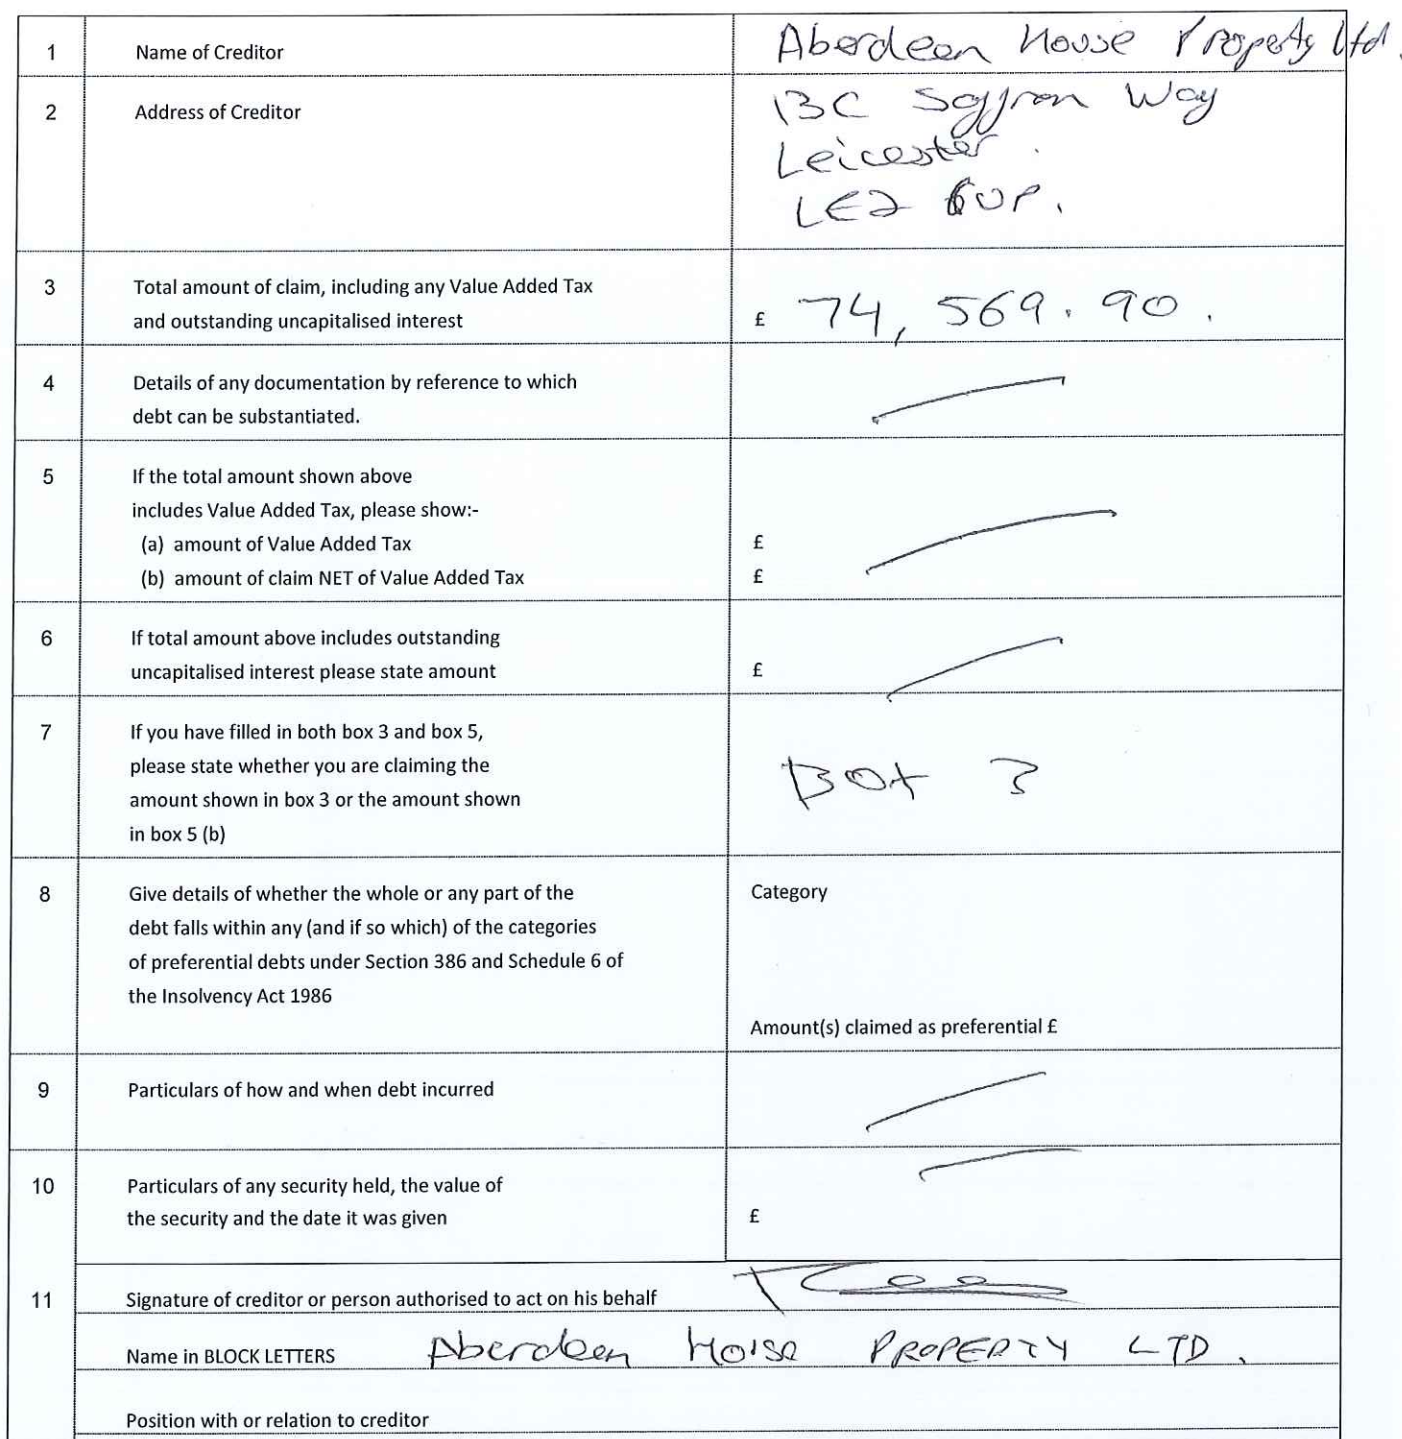 1 Name of Creditor Aberdeen House Property Ltd.
2 Address of Creditor 13C Saffron Way
Leicester.
LE2 6UP.
3 Total amount of claim, including any Value Added Tax
and outstanding uncapitalised interest £ 74,569.90.
4 Details of any documentation by reference to which
debt can be substantiated.
5 If the total amount shown above
includes Value Added Tax, please show:-
(a) amount of Value Added Tax £
(b) amount of claim NET of Value Added Tax £
6 If total amount above includes outstanding
uncapitalised interest please state amount £
7 If you have filled in both box 3 and box 5,
please state whether you are claiming the
amount shown in box 3 or the amount shown
in box 5 (b)
Box 3
8 Give details of whether the whole or any part of the
debt falls within any (and if so which) of the categories
of preferential debts under Section 386 and Schedule 6 of
the Insolvency Act 1986
Category
Amount(s) claimed as preferential £
9 Particulars of how and when debt incurred
10 Particulars of any security held, the value of
the security and the date it was given £
11 Signature of creditor or person authorised to act on his behalf
Name in BLOCK LETTERS Aberdeen House PROPERTY LTD.
Position with or relation to creditor